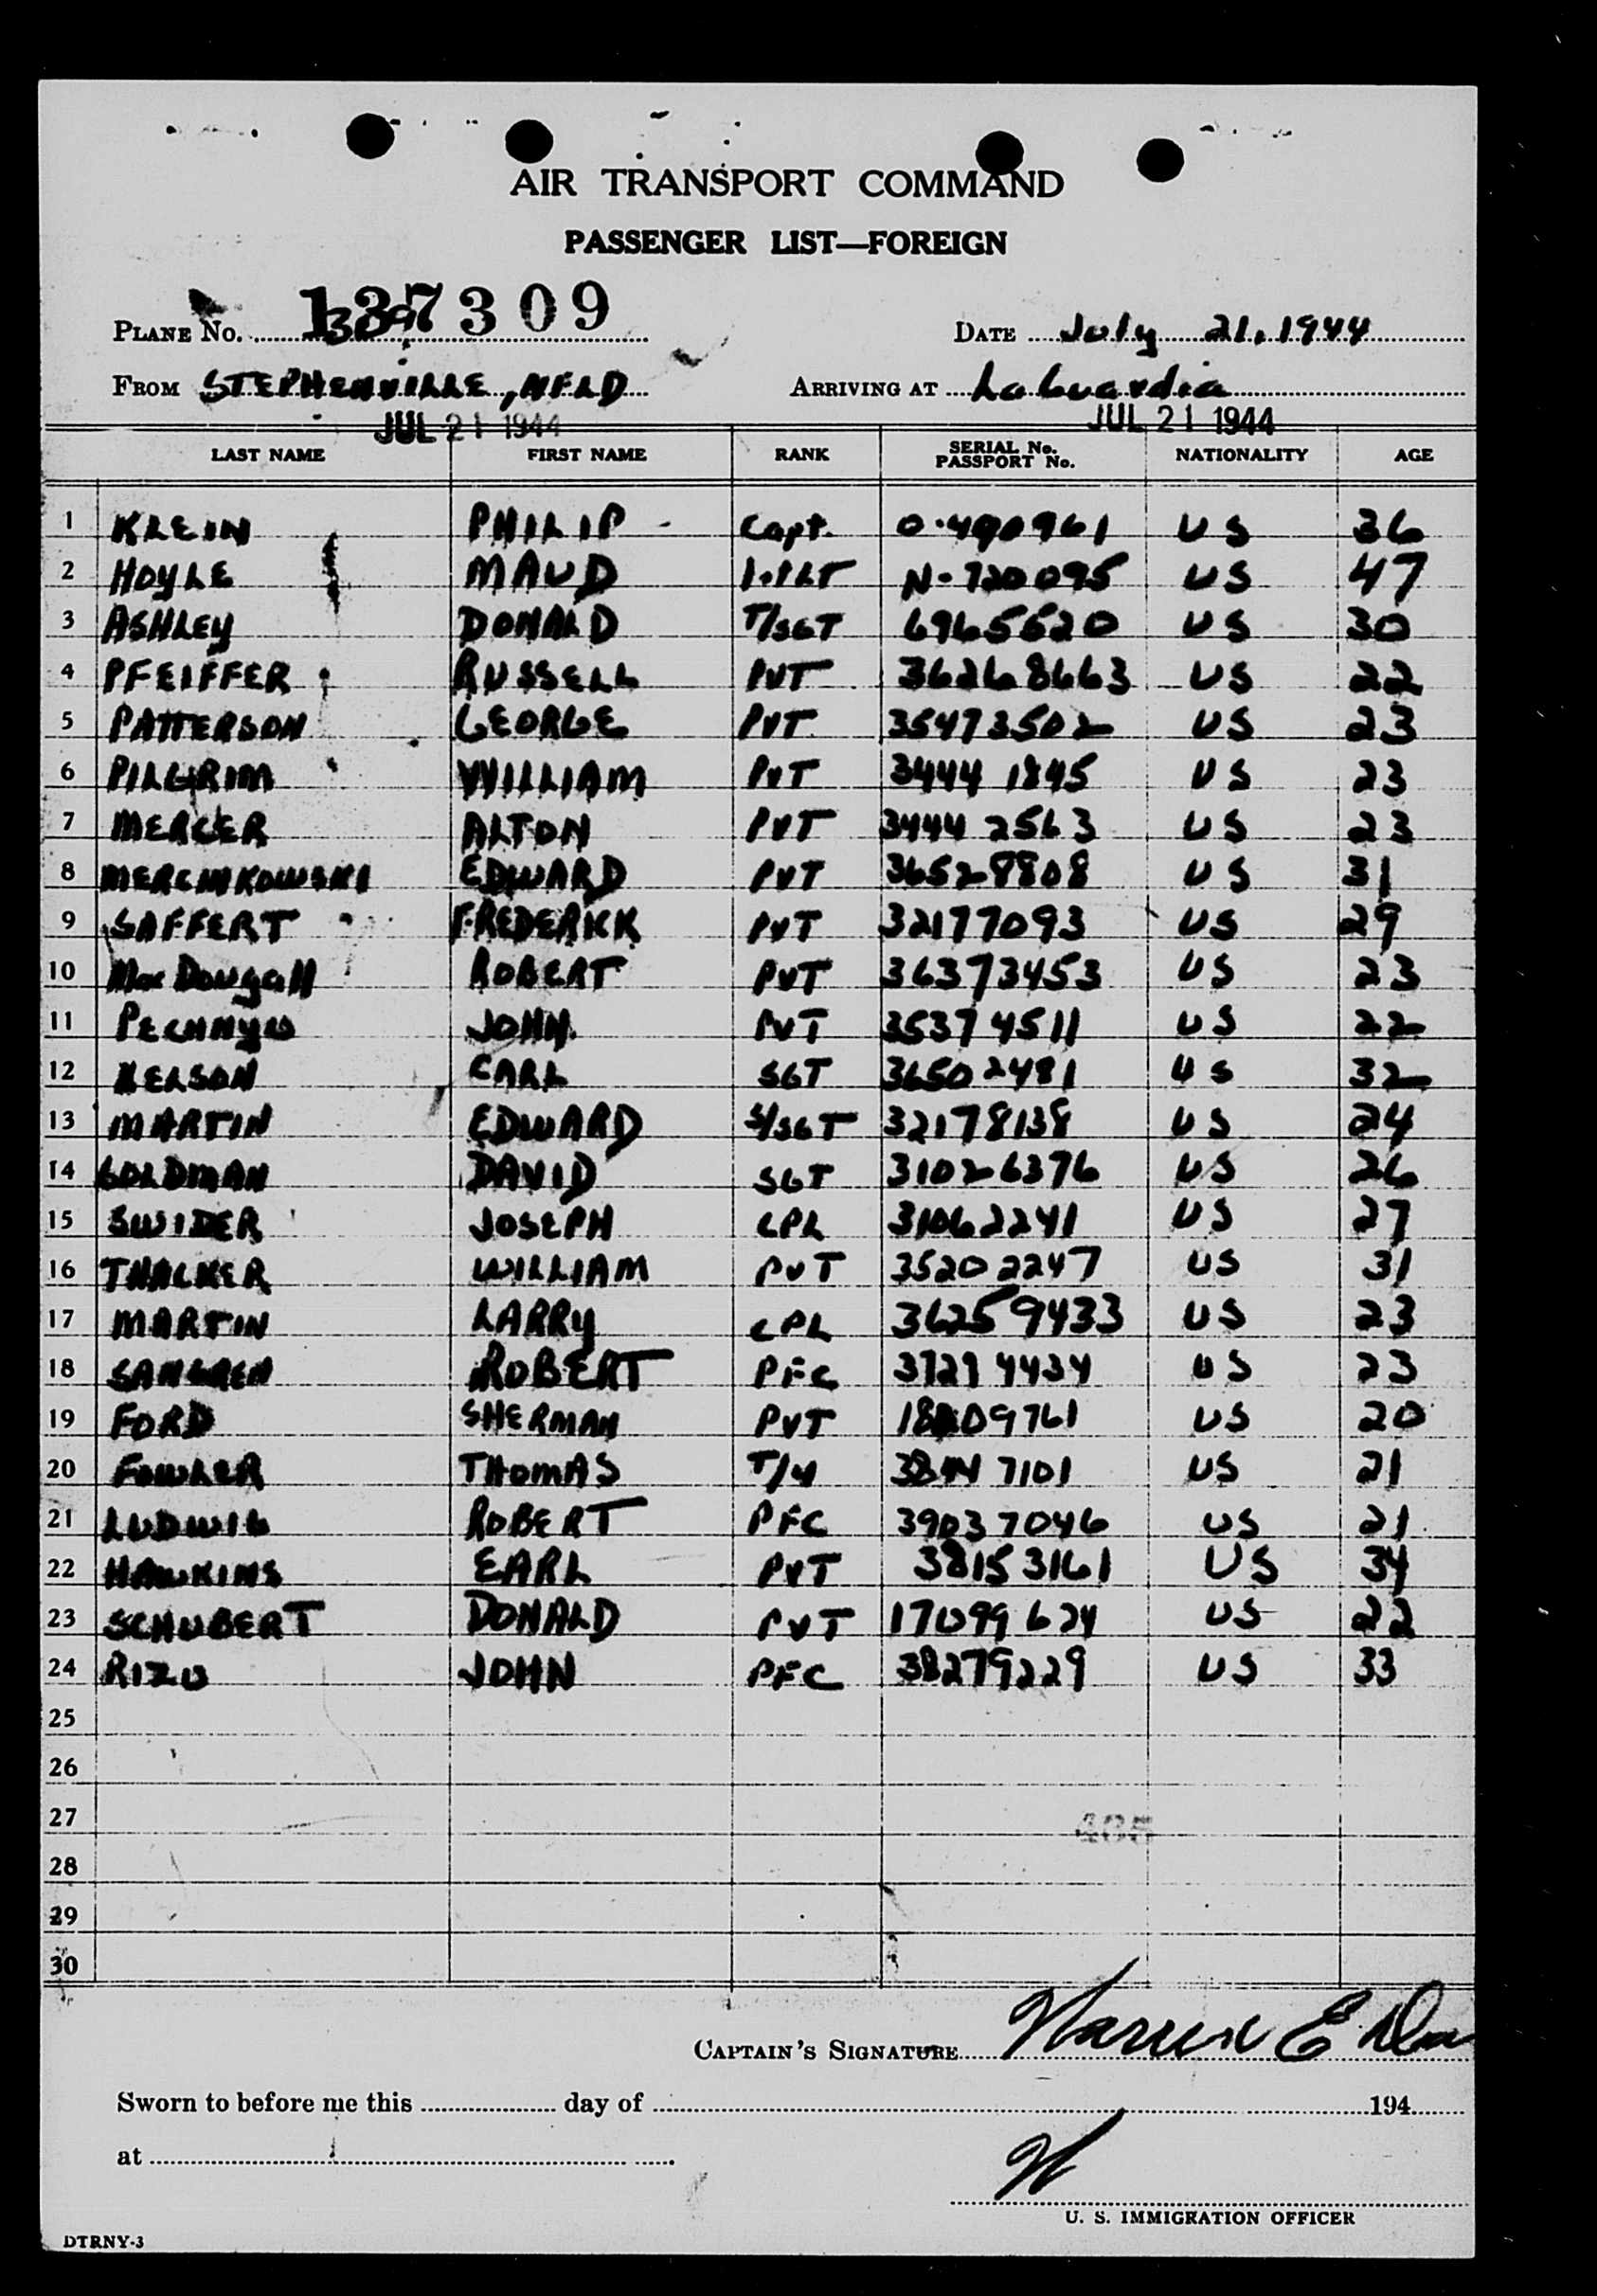 AIR TRANSPORT COMMAND
PASSENGER LIST—FOREIGN
PLANE No. 137309 DATE July 21, 1944
FROM STEPHENVILLE, NFLD ARRIVING AT LaGuardia
JUL 21 1944 JUL 21 1944
LAST NAME FIRST NAME RANK SERIAL No. PASSPORT No. NATIONALITY AGE
1 KLEIN PHILIP Capt. O-490961 US 36
2 HOYLE MAUD N-720095 US 47
3 ASHLEY DONALD T/SGT 6965620 US 30
4 PFEIFFER RUSSELL PVT 36268663 US 22
5 PATTERSON GEORGE PVT 35473502 US 23
6 PILGRIM WILLIAM PVT 34441845 US 23
7 MERCER ALTON PVT 34442563 US 23
8 EDWARD PVT 36528808 US 31
9 SAFFERT FREDERICK PVT 32177093 US 29
10 MacDougall ROBERT PVT 36373453 US 23
11 JOHN PVT 35374511 US 22
12 NELSON CARL SGT 36502481 US 32
13 MARTIN EDWARD S/SGT 32178138 US 24
14 GOLDMAN DAVID SGT 31026376 US 26
15 SWIDER JOSEPH CPL 31062241 US 27
16 THACKER WILLIAM PVT 35202247 US 31
17 MARTIN LARRY CPL 36259433 US 23
18 SANGREN ROBERT PFC 37294434 US 23
19 FORD SHERMAN PVT US 20
20 FOWLER THOMAS T/4 US 21
21 LUDWIG ROBERT PFC 39037046 US 21
22 HAWKINS EARL PVT 38153161 US 34
23 SCHUBERT DONALD PVT 17099624 US 22
24 RIZO JOHN PFC 38279229 US 33
25
26
27
28
29
30
CAPTAIN'S SIGNATURE Warren E
Sworn to before me this day of 194
at
U. S. IMMIGRATION OFFICER
DTRNY-3